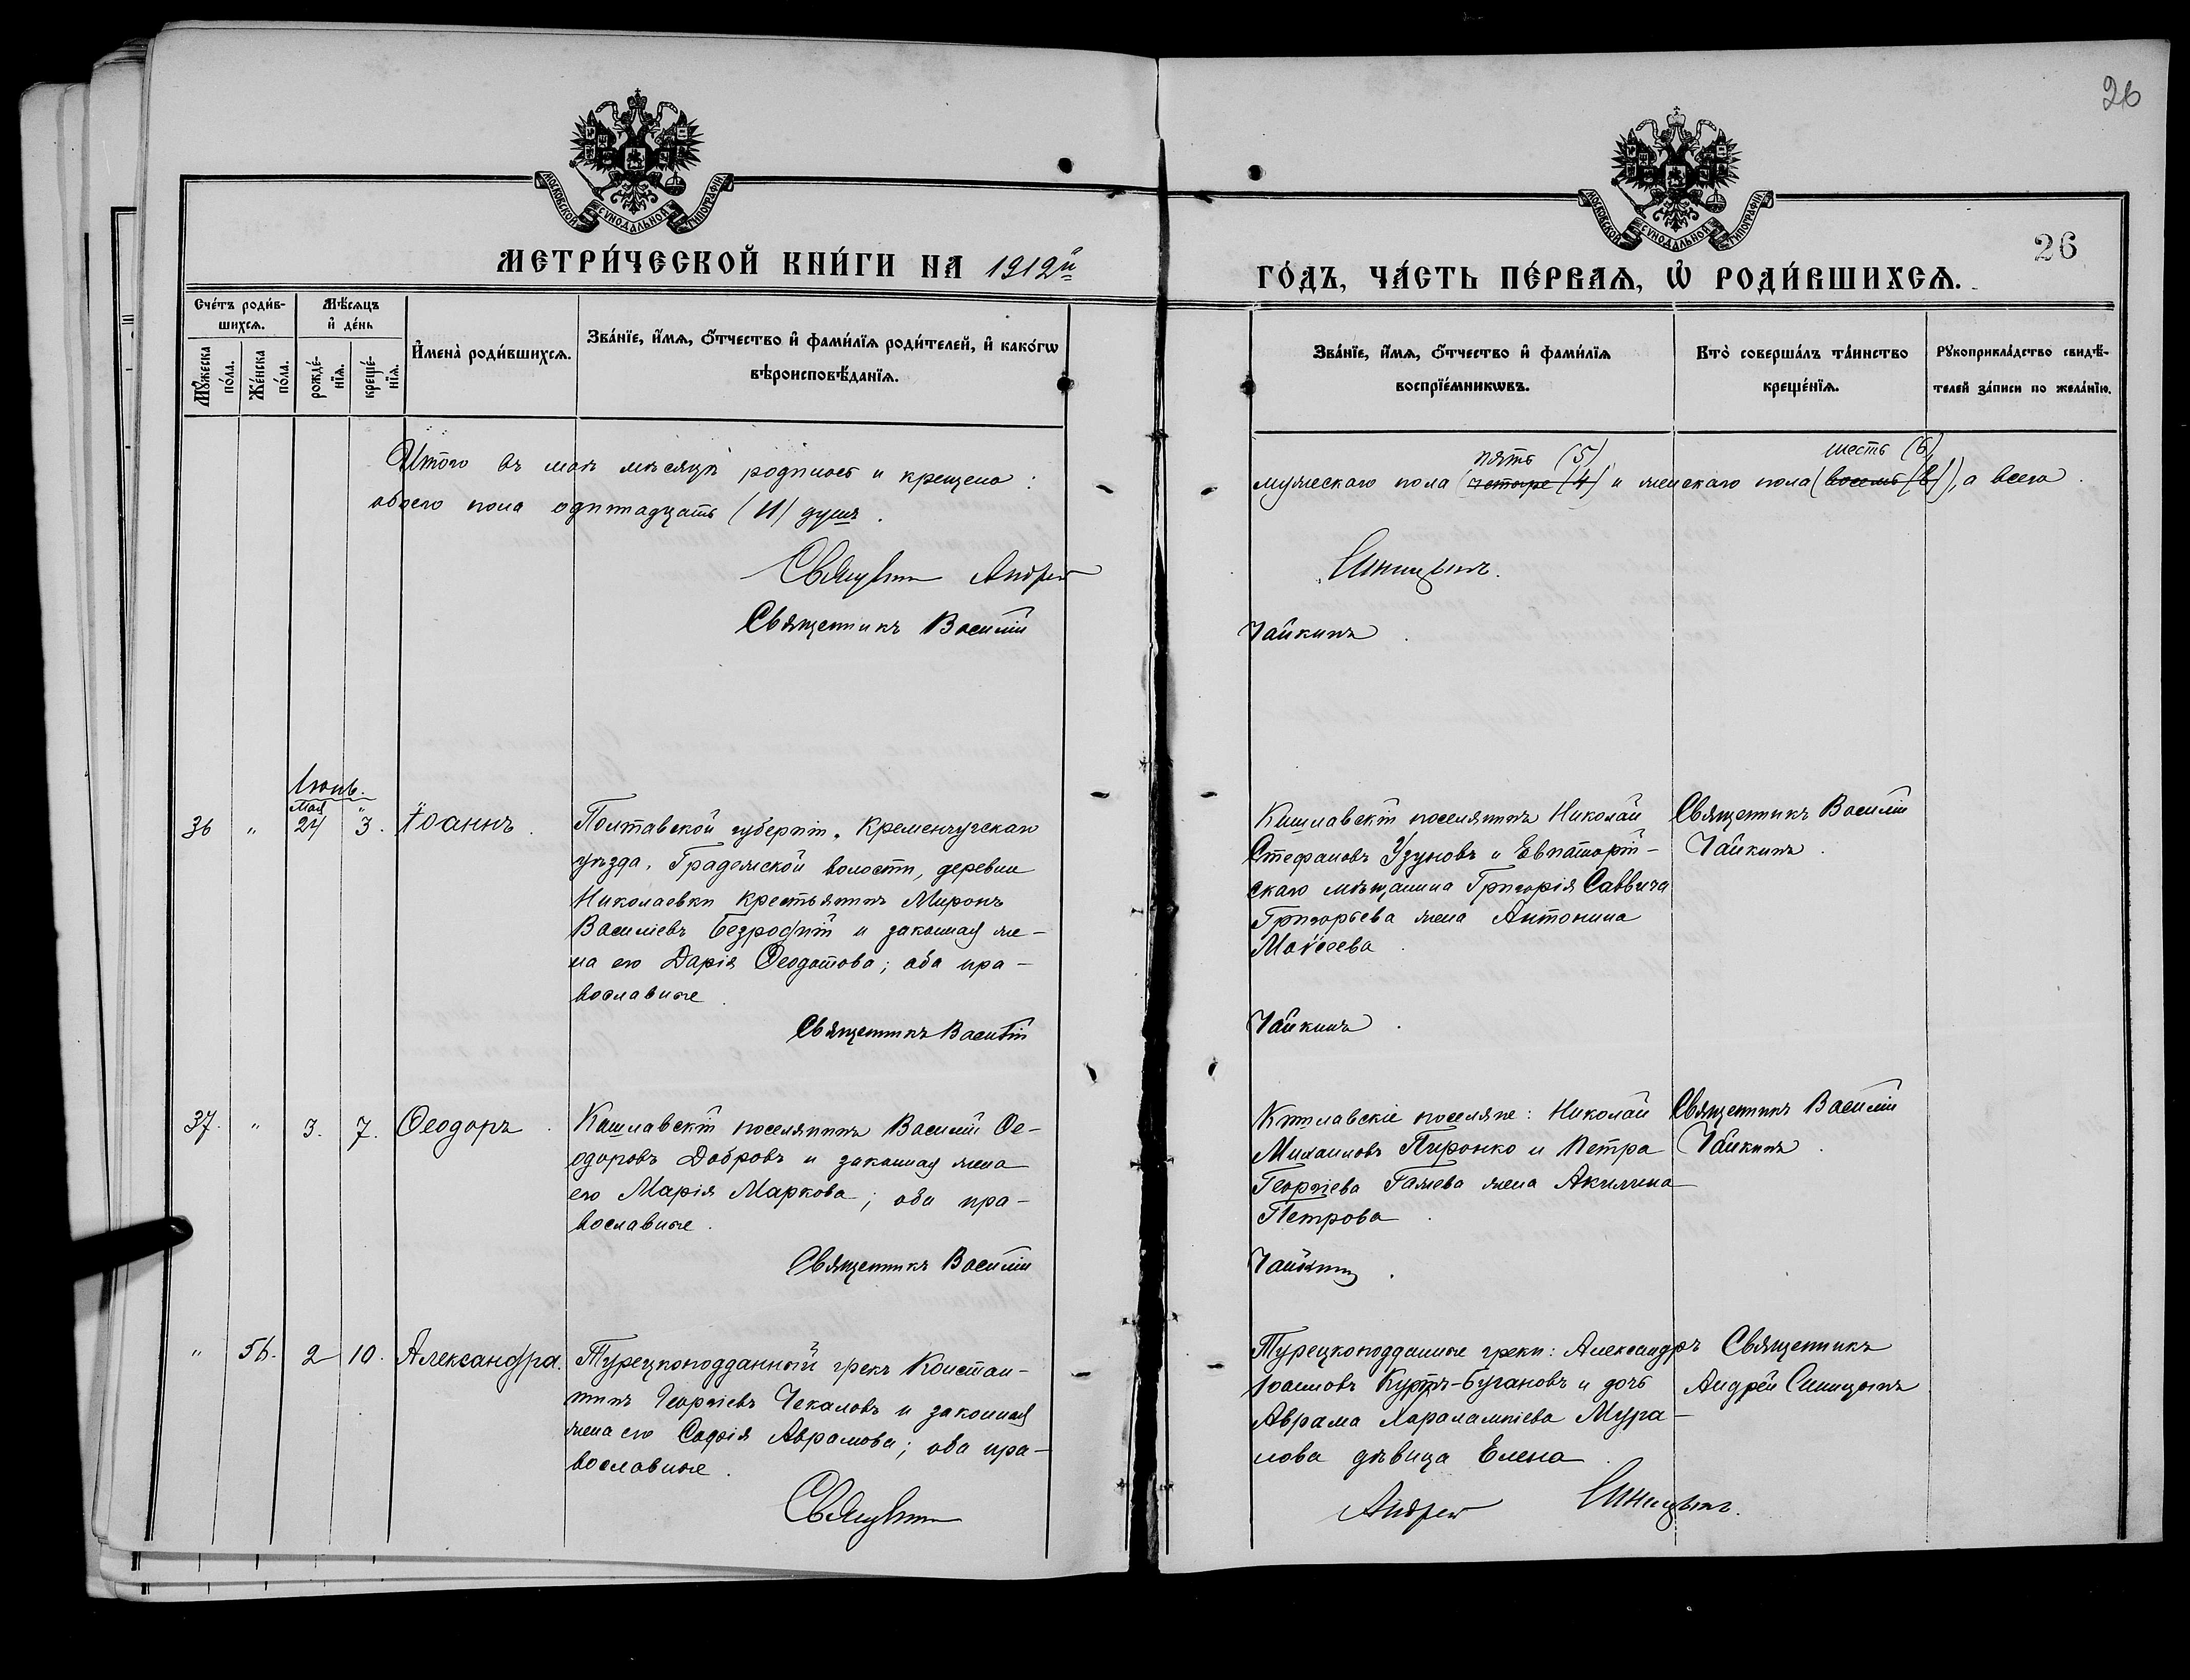 26
МОСКОВСКОЙ СУНОДАЛЬНОЙ ТИПОГРАФІИ
МОСКОВСКОЙ СУНОДАЛЬНОЙ ТИПОГРАФІИ
26
МЕТРИ́ЧЕСКОЙ КНИ́ГИ НА 1912й
ГО́ДЪ, ЧА́СТЬ ПЕ́РВАѦ, Ѽ РОДИ́ВШИХСѦ.
Сче́тъ роди́в-
шихсѧ.
Мѣ́сѧцъ
и҆ де́нь
Мꙋ́жеска
по́ла.
Же́нска
по́ла.
рожде́-
нїѧ.
креще́-
нїѧ.
И҆мена̀ роди́вшихсѧ.
Зва́нїе, и҆́мѧ, ѻ҆́тчество и҆ фами́лїѧ роди́телей, и҆ како́гѡ
вѣроисповѣ́данїѧ.
Зва́нїе, и҆́мѧ, ѻ҆́тчество и҆ фами́лїѧ
воспрїе́мникѡвъ.
Кто̀ соверша́лъ та́инство
креще́нїѧ.
Рꙋкоприкла́дство свидѣ́-
телей за́писи по жела́нїю.
Итого въ маѣ мѣсяцѣ родилось и крещено:
обоего пола одиннадцать (11) душъ.
пять (5) шесть (6)
мужескаго пола (четыре (4) и женскаго пола (восемь (8)), а всего
Священникъ Андрей
Синицынъ.
Священникъ Василій
Чайкинъ.
Іюнь.
Мая "
36 " 24 3. Іоаннъ.
Полтавской губерніи, Кременчугскаго
уѣзда, Градижской волости, деревни
Николаевки крестьянинъ Миронъ
Василіевъ и законная же-
на его Дарія Ѳеодотова; оба пра-
вославные.
Священникъ Василій
Кишлавскій поселянинъ Николай
Стефановъ Узуновъ и Евпаторій-
скаго мѣщанина Григорія Саввича
Григорьева жена Антонина
Моѵсеева.
Чайкинъ.
Священникъ Василій
Чайкинъ.
37. " 3. 7. Ѳеодоръ.
Кишлавскій поселянинъ Василій Ѳе-
одоровъ Добровъ и законная жена
его Марія Маркова; оба пра-
вославные.
Священникъ Василій
Кишлавскіе поселяне: Николай
Михаиловъ Пиронко и Петра
Георгіева Галева жена Акилина
Петрова.
Чайкинъ.
Священникъ Василій
Чайкинъ.
" 2 10. Александра.
Турецкоподданный грекъ Констан-
тинъ Георгіевъ Чекаловъ и законная
жена его Софія Аврамова; оба пра-
вославные.
Священникъ
Турецкоподданные греки: Александръ
Іоанновъ и дочь
Аврама Харалампіева Мура-
това дѣвица Елена.
Андрей Синицынъ.
Священникъ
Андрей Синицынъ